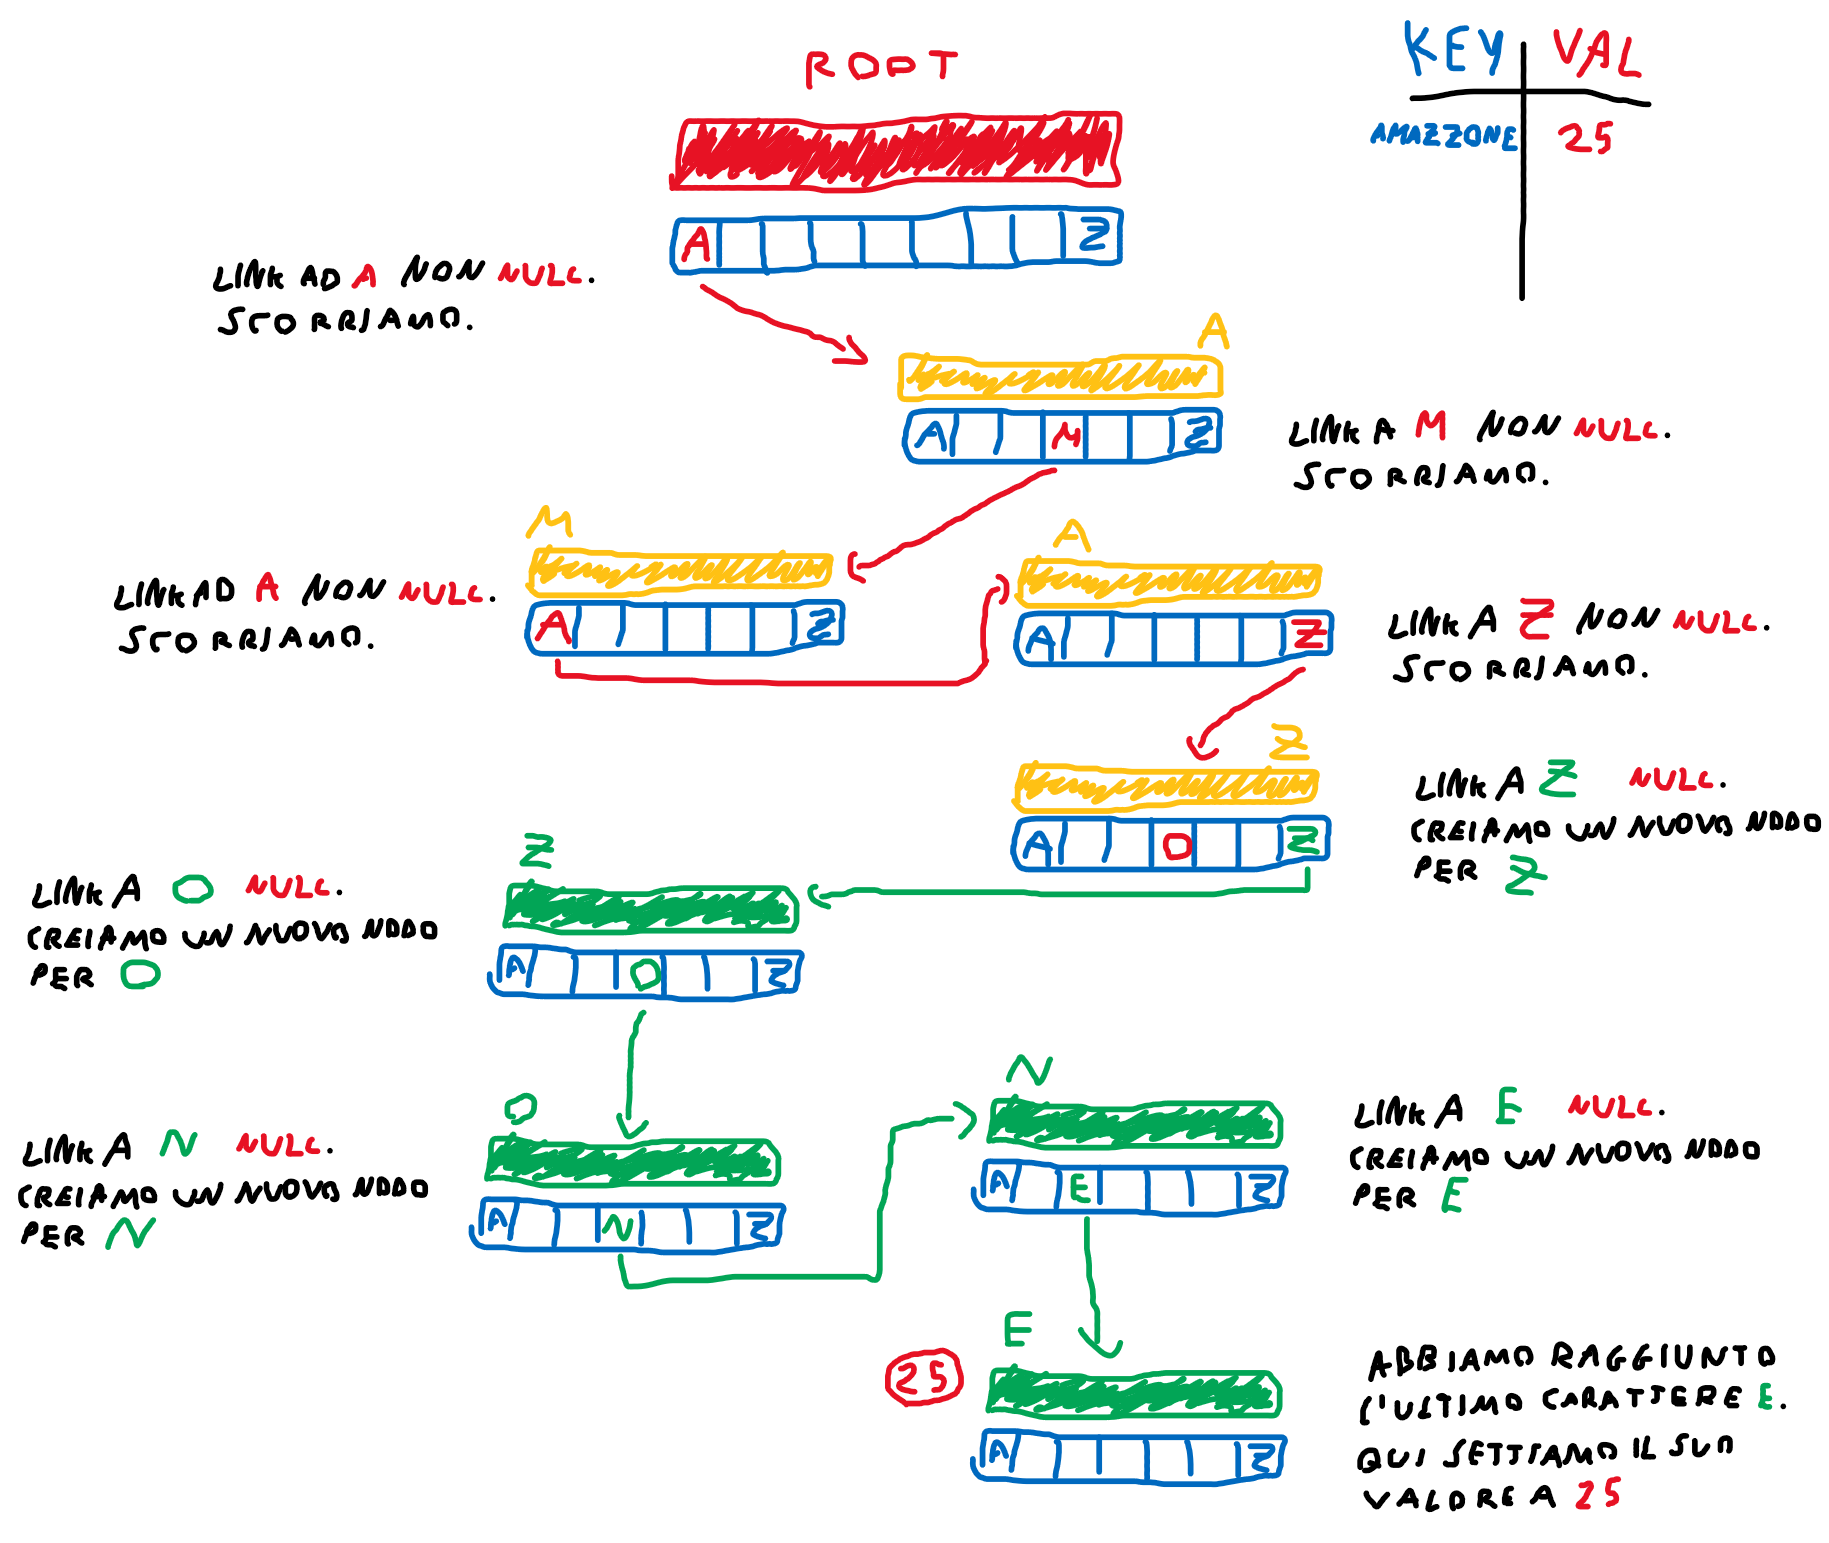 ROOT
KEY VAL
AMAZZONE 25
A Z
LINK AD A NON NULL.
SCORRIAMO.
A
A M Z
LINK A M NON NULL.
SCORRIAMO.
M
A Z
LINK AD A NON NULL.
SCORRIAMO.
A
A Z
LINK A Z NON NULL.
SCORRIAMO.
Z
A O Z
LINK A Z NULL.
CREIAMO UN NUOVO NODO
PER Z
Z
A O Z
LINK A O NULL.
CREIAMO UN NUOVO NODO
PER O
O
A N Z
LINK A N NULL.
CREIAMO UN NUOVO NODO
PER N
N
A E Z
LINK A E NULL.
CREIAMO UN NUOVO NODO
PER E
E
25
A Z
ABBIAMO RAGGIUNTO
L'ULTIMO CARATTERE E.
QUI SETTIAMO IL SUO
VALORE A 25